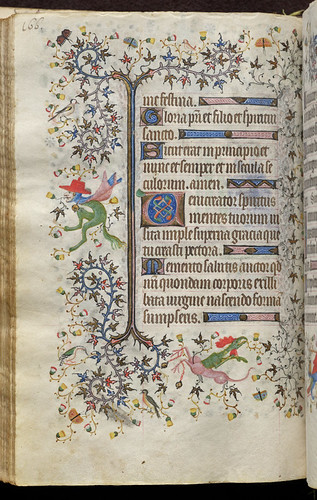 me festina.
Gloria pr̄i et filio et spiritui
sancto.
Sicut erat in principio et
nunc et semper et in secula se
culorum. amen.
Veni creator spiritus
mentes tuorum vi
sita imple superna gracia que
tu creasti pectora.
Memento salutis auctor q̄
nr̄i quondam corporis ex illi
bata virgine nascendo formā
sumpseris.